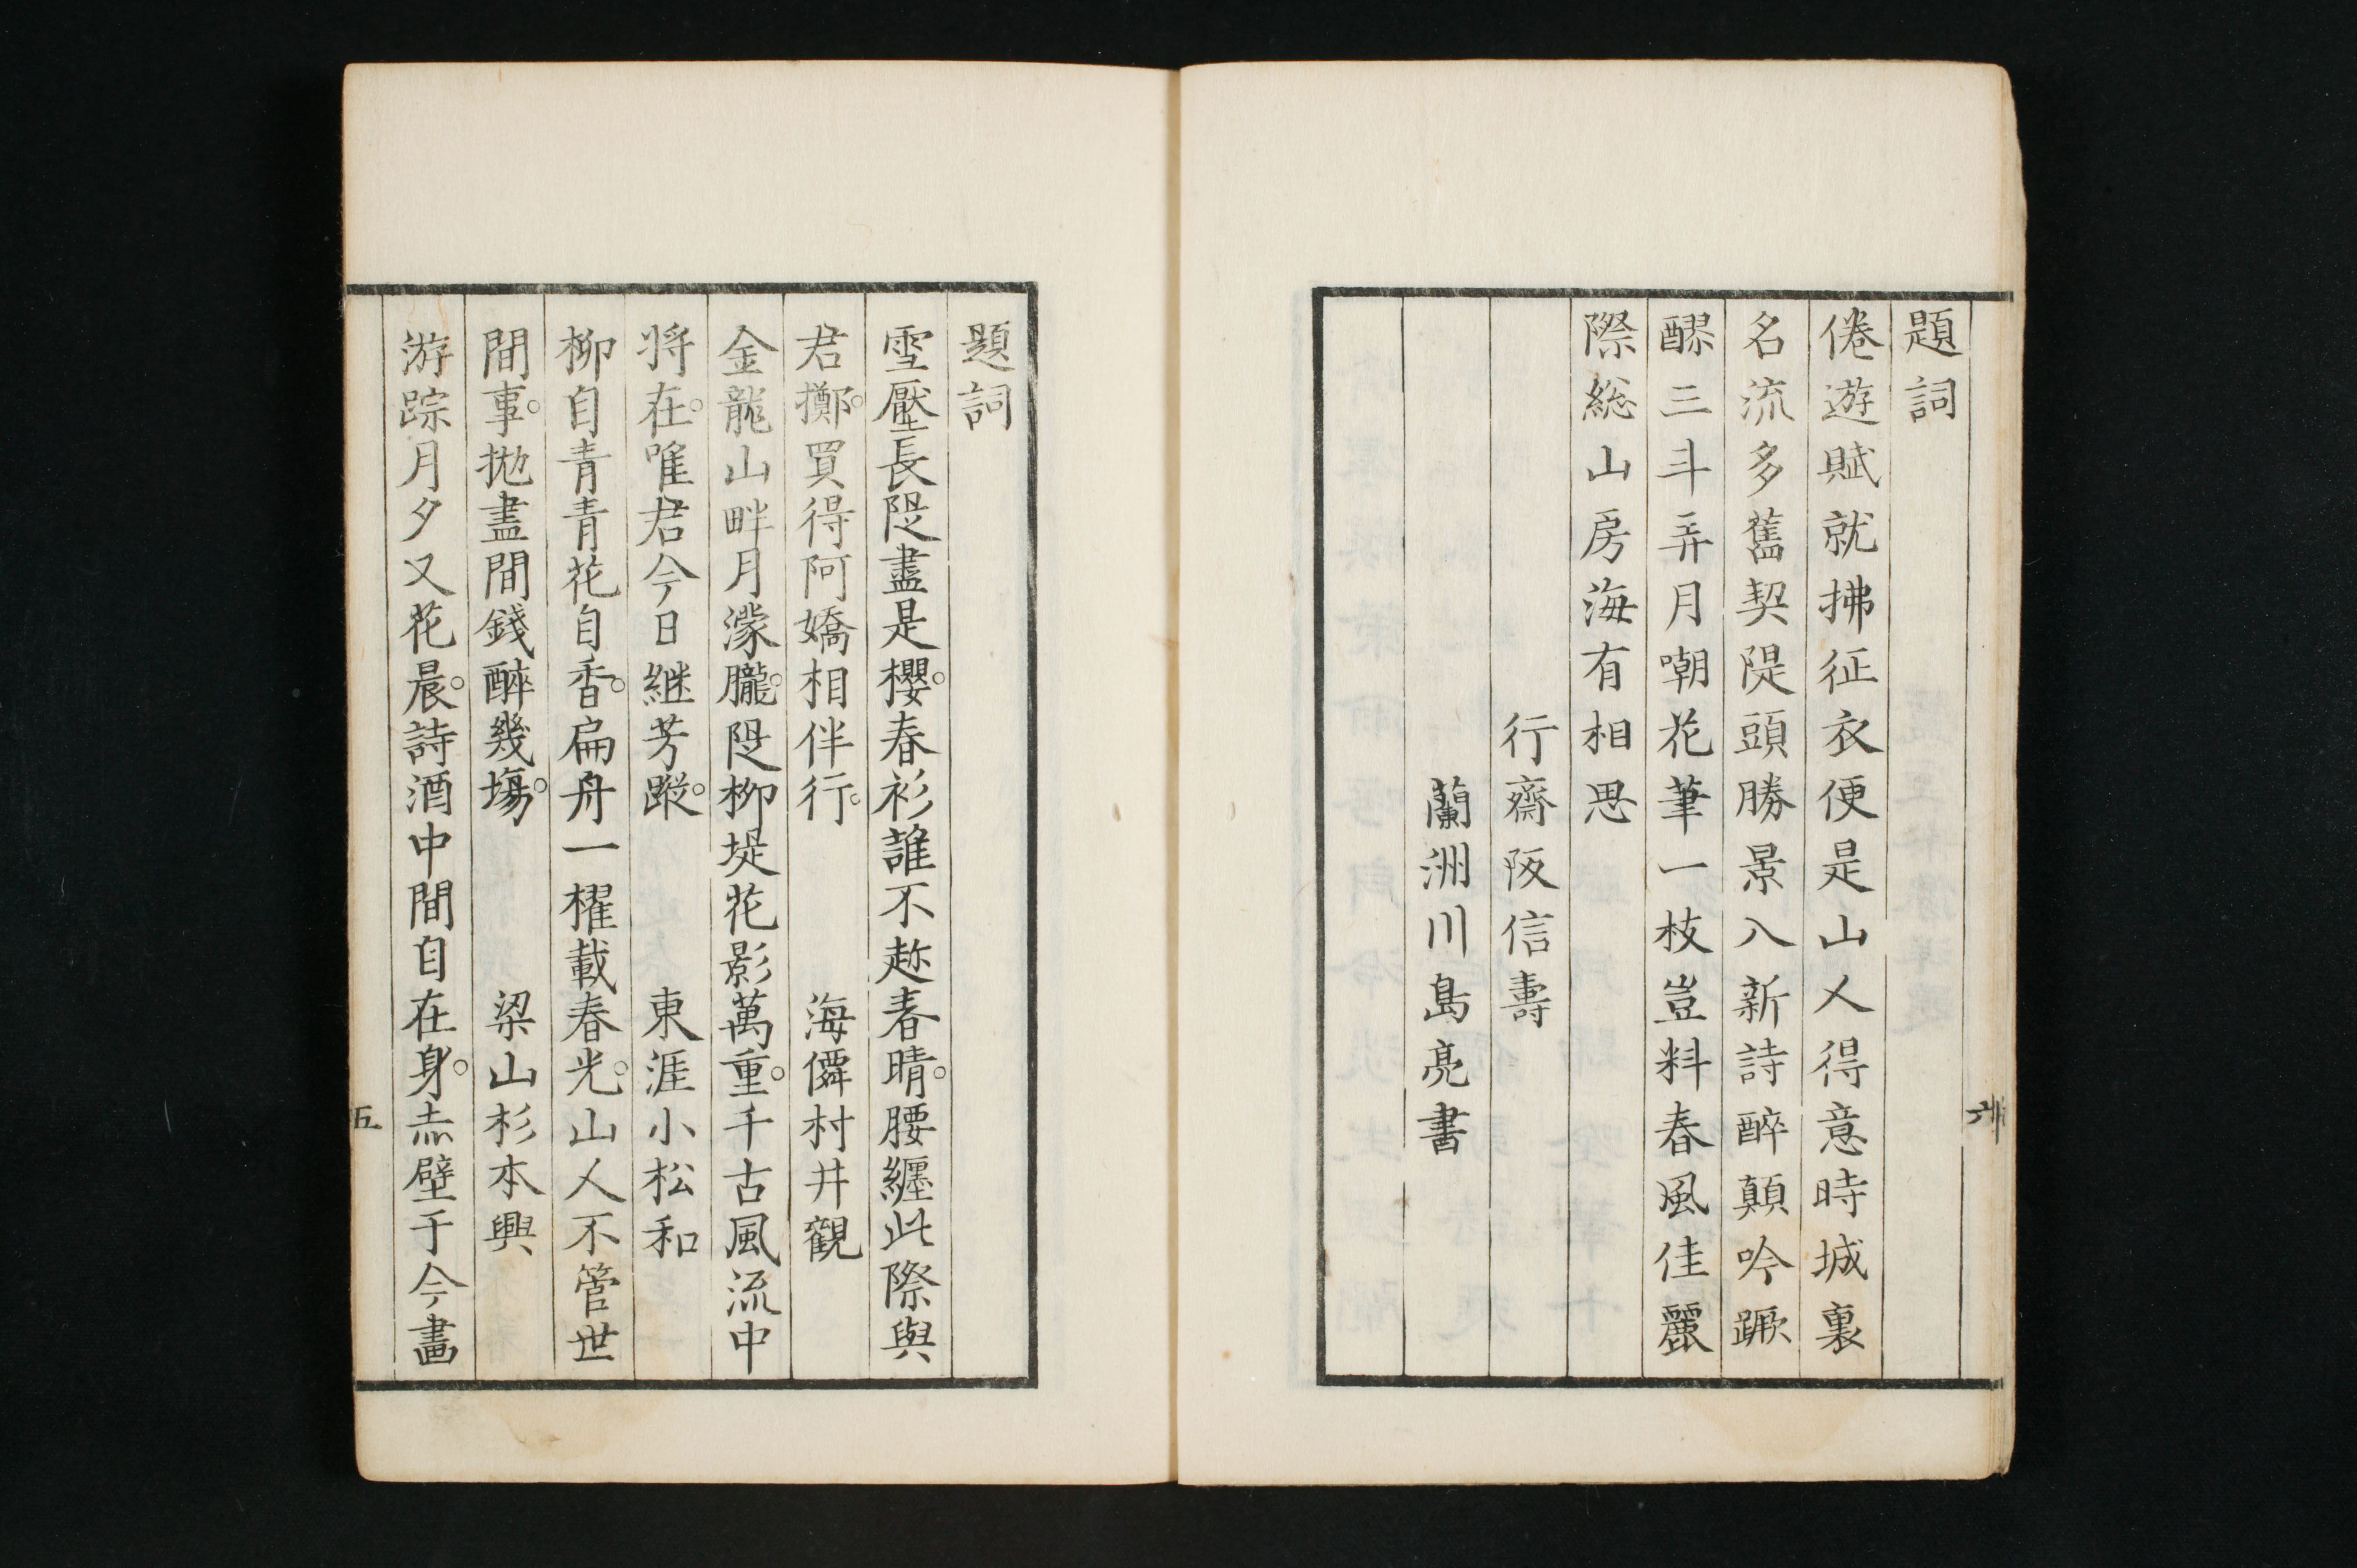 題詞
倦遊賦就拂征衣便是山人得意時城裏
名流多舊契隄頭勝景八新詩醉顛吟蹶
醪三斗弄月嘲花筆一枝豈料春風佳麗
際総山房海有相思
行齋阪信壽
蘭洲川島亮書
題詞
雪壓長隄盡是櫻。春衫誰不趂春晴。腰纏此際與
君擲。買得阿嬌相伴行。
海僊村井觀
金龍山畔月濛朧。隄柳堤花影萬重。千古風流中
将在。唯君今日継芳蹤。
東涯小松和
柳自青青花自香。扁舟一櫂載春光。山人不管世
間事。拋盡間錢醉幾塲。
梁山杉本興
游踪月夕又花晨。詩酒中間自在身。赤壁于今畵
五